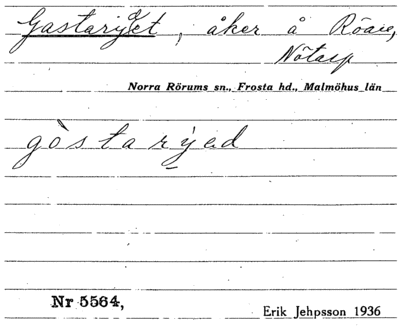 Gastarydet, åker å Röae,
Nötasp
Norra Rörums sn., Frosta hd., Malmöhus län
gòstarýed
Nr 5564,
Erik Jehpsson 1936